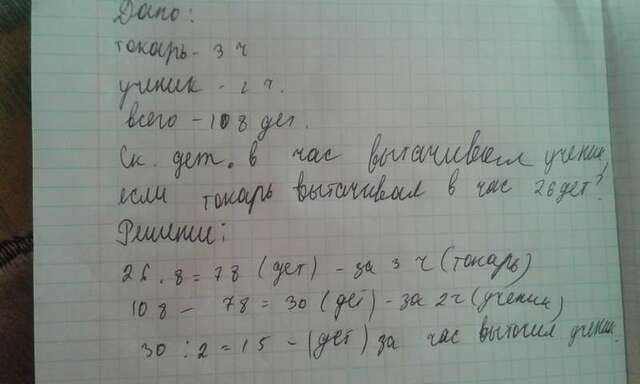 Дано:
токарь - 3 ч
ученик - 2 ч.
всего - 108 дет.
Ск. дет. в час вытачивал ученик
если токарь вытачивал в час 26 дет?
Решение:
26 . 3 = 78 (дет) - за 3 ч (токарь)
108 - 78 = 30 (дет) - за 2 ч (ученик)
30 : 2 = 15 - (дет) за час выточил ученик.